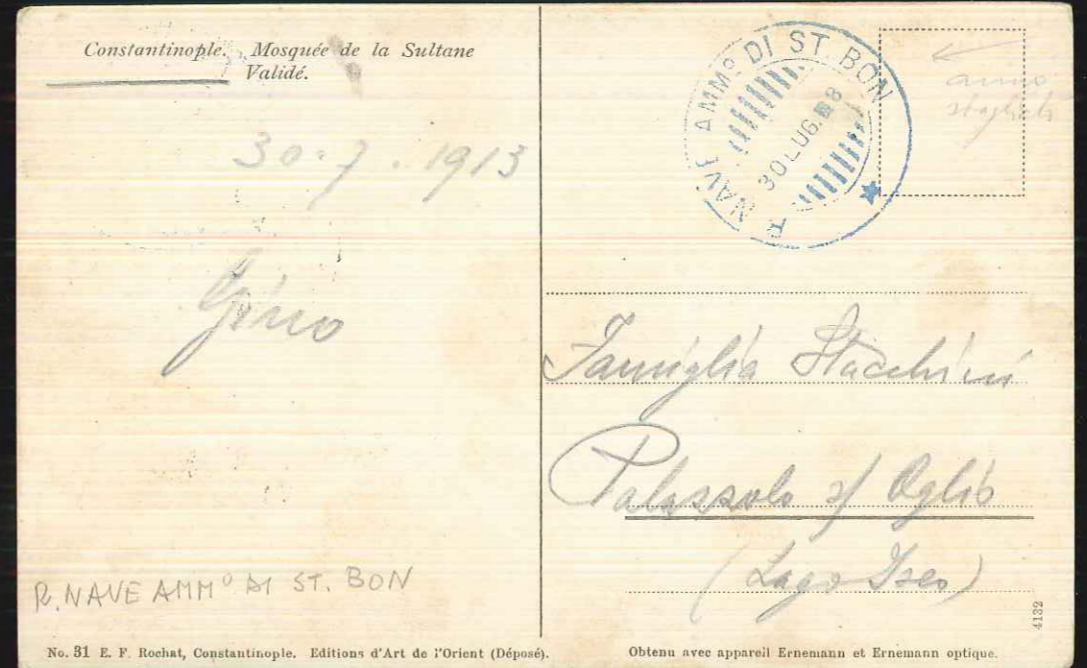 Constantinople. Mosquée de la Sultane
Validé.
30.7.1913
Gino
R. NAVE AMMº DI ST. BON
No. 31 E. F. Rochat, Constantinople. Editions d'Art de l'Orient (Déposé).
R. NAVE AMMº DI ST. BON
30 LUG. 8
anno
Famiglia Stacchini
Palazzolo s/ Oglio
(Lago Iseo)
4132
Obtenu avec appareil Ernemann et Ernemann optique.